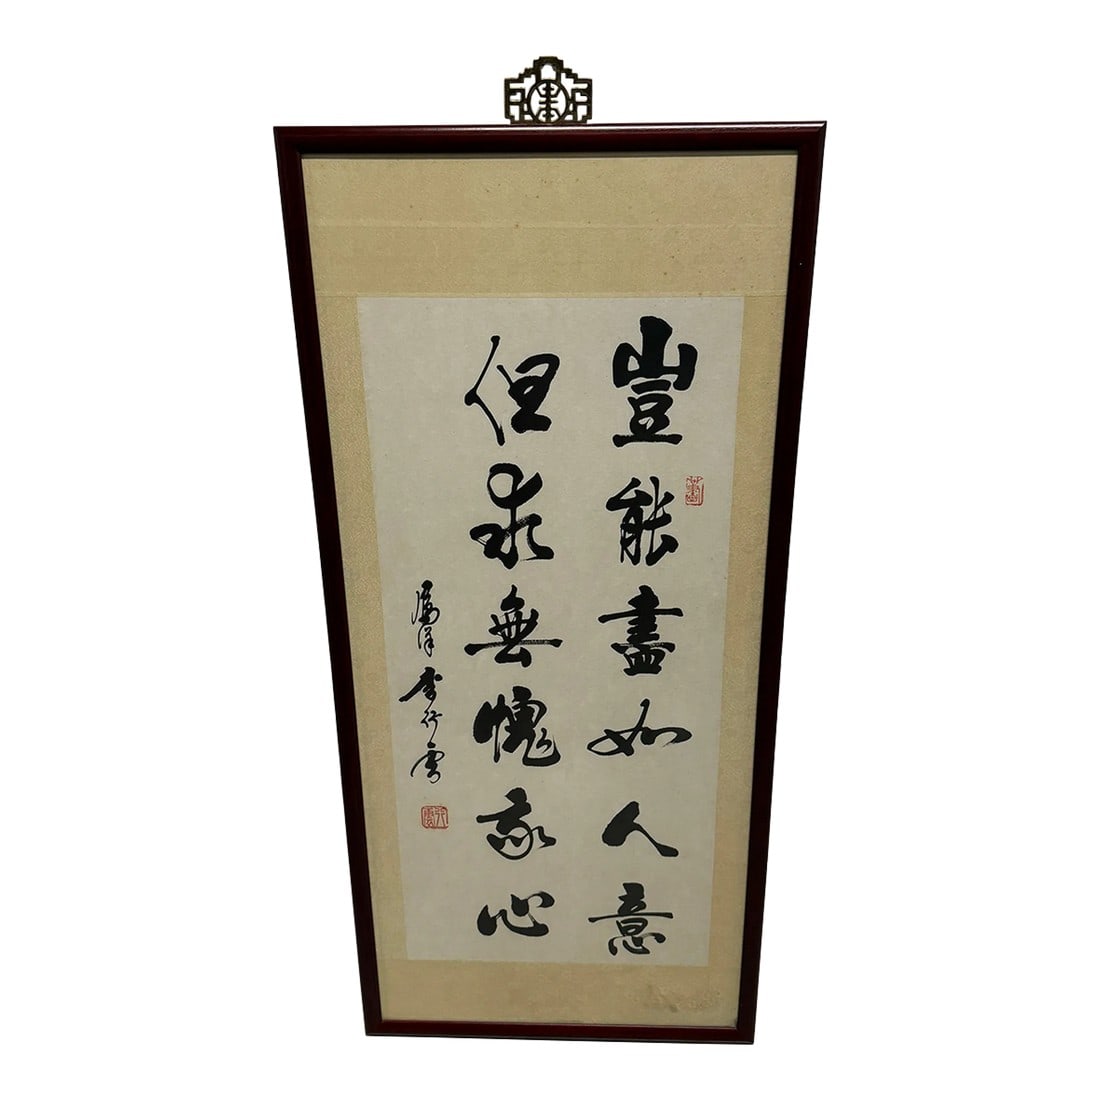 豈能盡如人意
但求無愧我心
李行雲
行雲